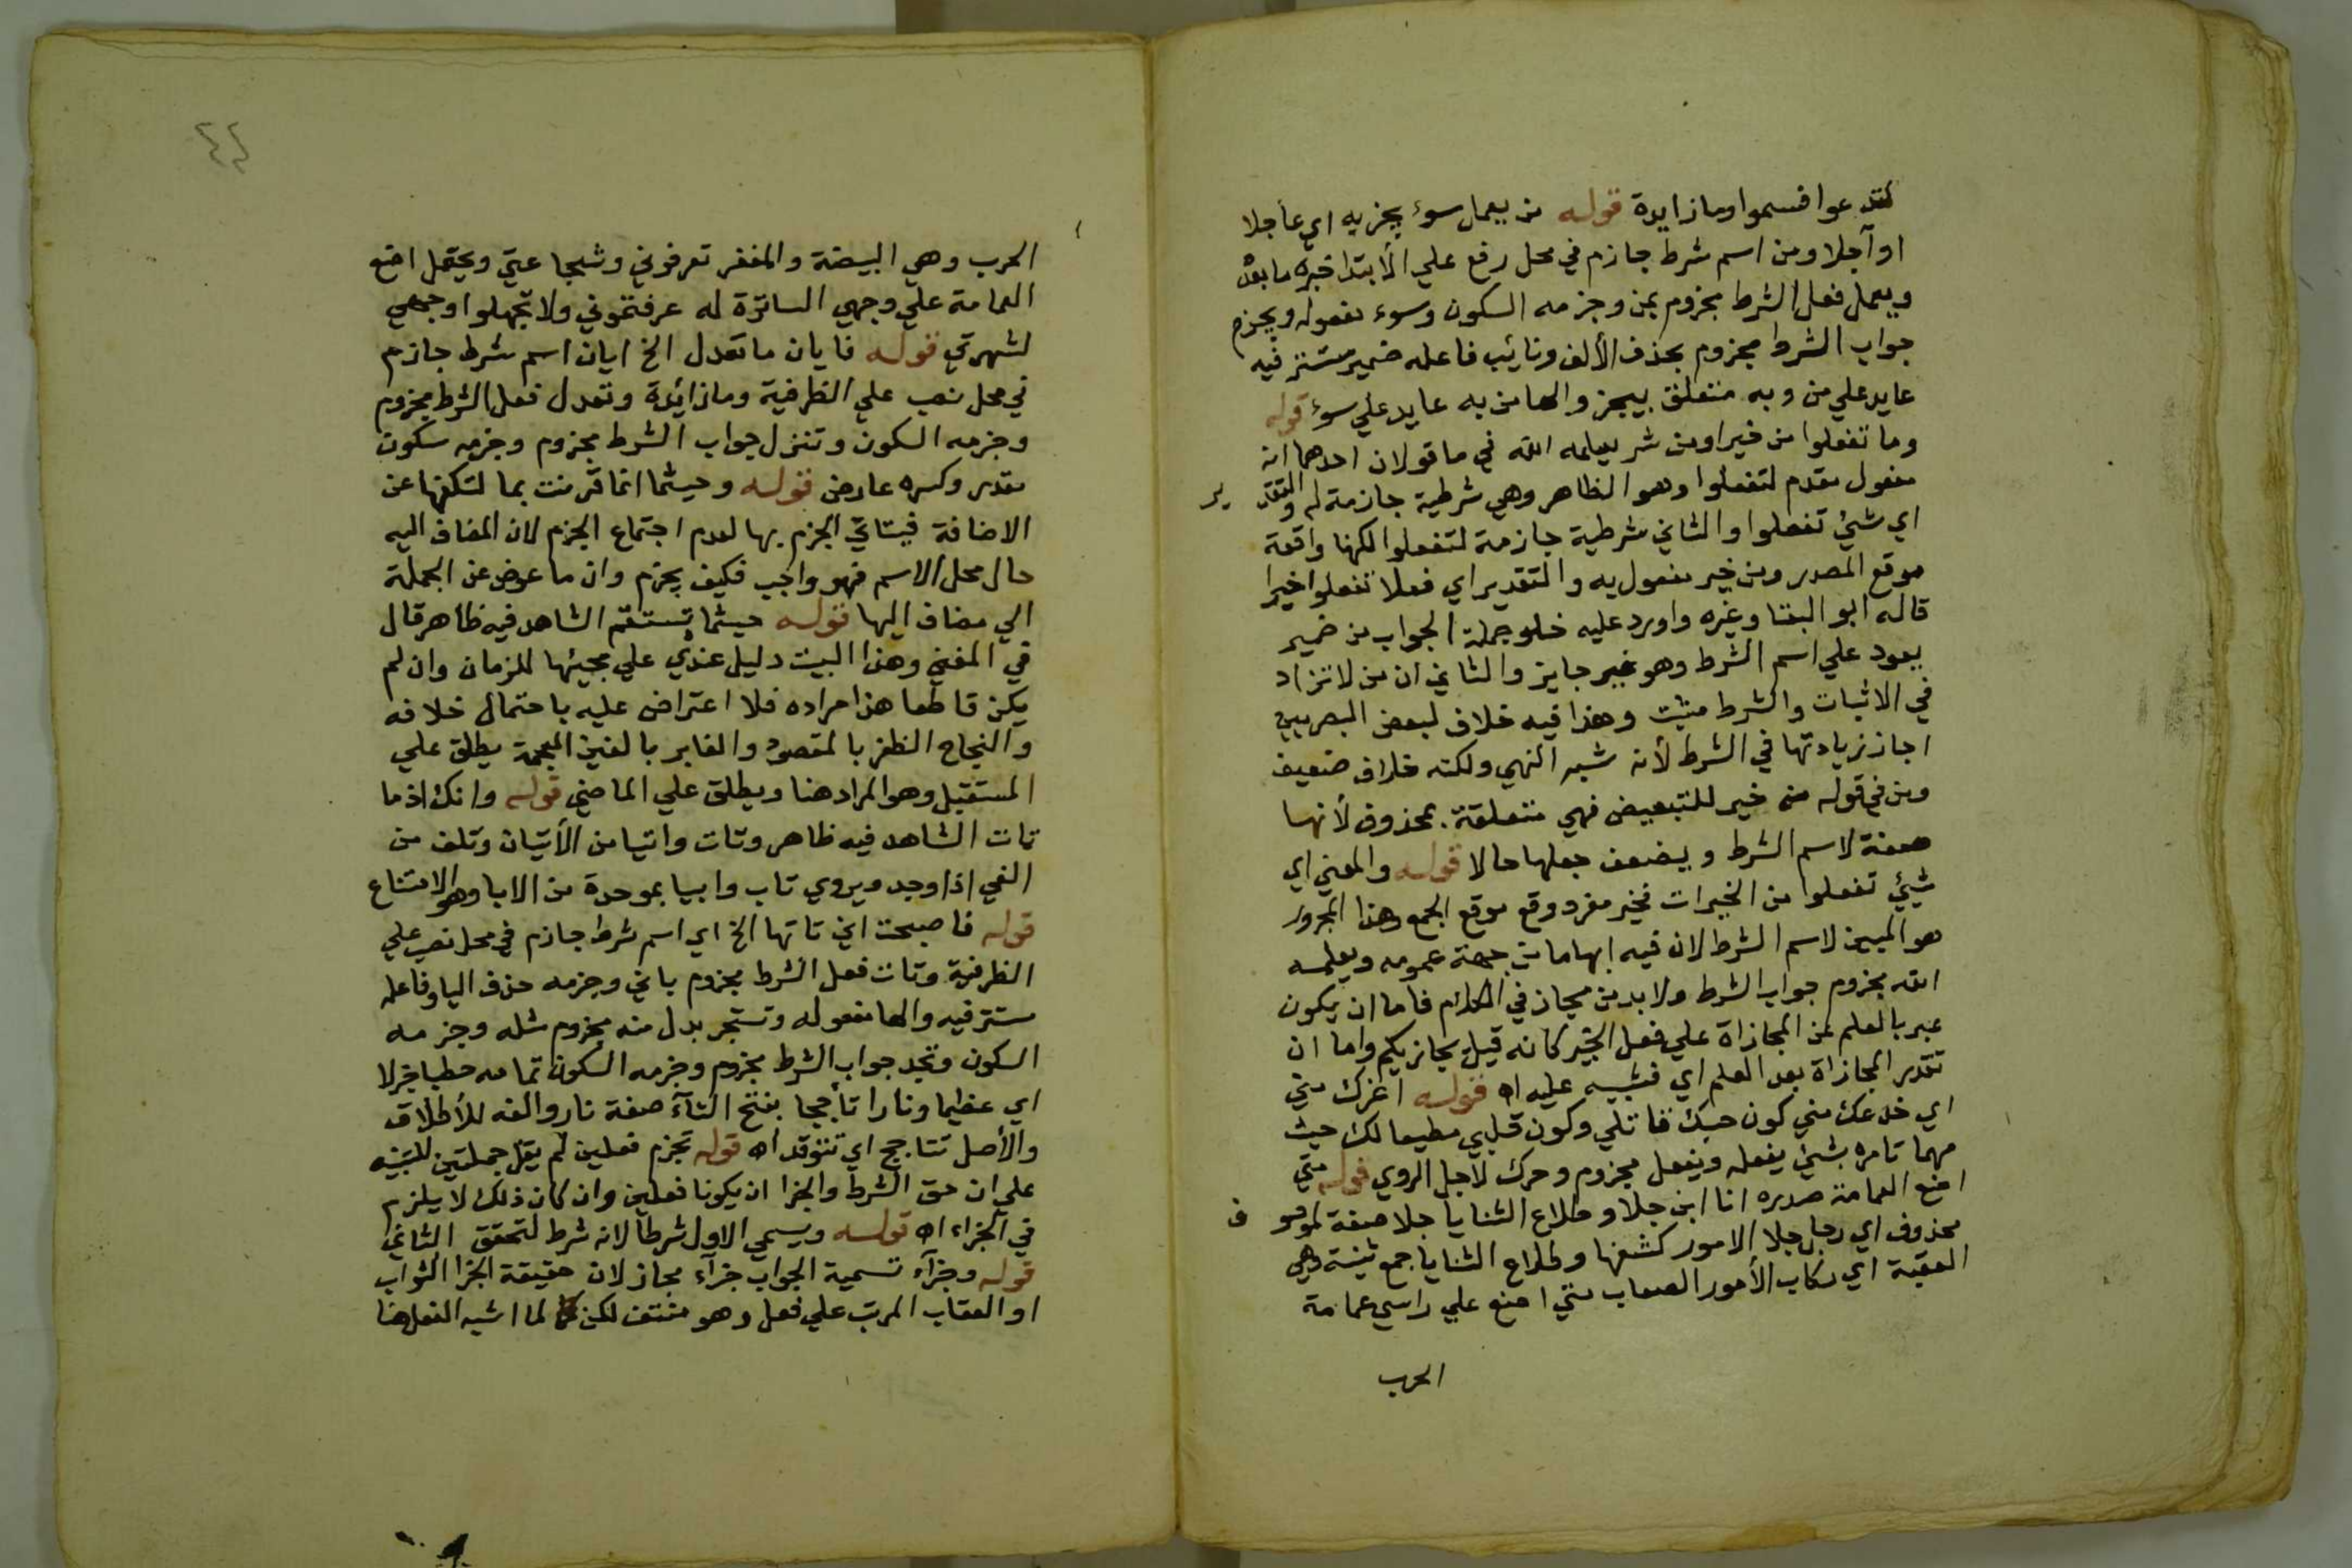 لتدعوا فسموا وما زايدة قوله من يعمل سوء يجز به اي عاجلا
او آجلا ومن اسم شرط جازم في محل رفع علي الأبتدا خبره ما بعده
ويعمل فعل الشرط مجزوم بمن وجزمه السكون وسوء مفعوله ويجزم
جواب الشرط مجزوم بحذف الألف ونائب فاعله ضمير مستتر فيه
عايد علي من وبه متعلق بيجز والها من به عايد علي سوء قوله
وما تفعلوا من خير او من شر يعلمه الله في ما قولان احدهما انه
مفعول مقدم لتفعلوا وهو الظاهر وهي شرطية جازمة له والتقدير
اي شيئ تفعلوا والثاني شرطية جازمة لتفعلوا لكنها واقعة
موقع المصدر ومن خير مفعول به والتقدير اي فعلا تفعلوا خيرا
قاله ابو البقا وغيره واورد عليه خلو جملة الجواب من ضمير
يعود علي اسم الشرط وهو غير جايز والثاني ان من لا تزاد
في الاثبات والشرط مثبت وهذا فيه خلاف لبعض البصريين
اجاز زيادتها في الشرط لأنه شبه النهي ولكنه خلاف ضعيف
ومن في قوله من خير للتبعيض فهي متعلقة بمحذوف لأنها
صفة لاسم الشرط ويضعف جعلها حالا قوله والمعني اي
شيئ تفعلوا من الخيرات فخير مفرد وقع موقع الجمع وهذا المجرور
هو المبين لاسم الشرط لان فيه ابهاما من جهة عمومه ويعلمه
الله مجزوم جواب الشرط ولا بد من مجاز في الكلام فاما ان يكون
عبر بالعلم عن المجازاة علي فعل الخير كانه قيل يجازيكم واما ان
تقدر المجازاة بعد العلم اي فيثيبه عليه اه قوله اغرك مني
اي خدعك مني كون حبك قاتلي وكون قلبي مطيعا لك حيث
مهما تامره بشيئ يفعله ويفعل مجزوم وحرك لاجل الروي قوله متي
اضع العمامة صدره انا ابن جلا وطلاع الثنايا جلا صفة لموصوف
محذوف اي رجل جلا الامور كشفها وطلاع الثنايا جمع ثنية وهي
العقبة اي ركاب الأمور الصعاب متي اضع علي راسي عمامة
الحرب
٤٤
الحرب وهي البيضة والمغفر تعرفوني وشجاعتي ويحتمل اضع
العمامة علي وجهي الساترة له عرفتموني ولا تجهلوا وجهي
لشهرتي قوله فايان ما تعدل الخ ايان اسم شرط جازم
في محل نصب علي الظرفية وما زائدة وتعدل فعل الشرط مجزوم
وجزمه السكون وتنزل جواب الشرط مجزوم وجزمه سكون
مقدر وكسره عارض قوله وحيثما انما قرنت بما لتكفها عن
الاضافة فيتاتي الجزم بها لعدم اجتماع الجزم لان المضاف اليه
حال محل الاسم فهو واجب فكيف يجزم وان ما عوض عن الجملة
الي مضاف اليها قوله حيثما تستقم الشاهد فيه ظاهر قال
في المغني وهذا البيت دليل عندي علي مجيئها للزمان وان لم
يكن قاطعا هذا مراده فلا اعتراض عليه باحتمال خلافه
والنجاح الظفر بالمقصود والغابر بالغين المعجمة يطلق علي
المستقبل وهو المراد هنا ويطلق علي الماضي قوله وانك اذما
تات الشاهد فيه ظاهر وتات واتيا من الأتيان وتلف من
الفي اذا وجد ويروي تاب وابيا بموحدة من الابا وهو الامتناع
قوله فاصبحت اني تاتها الخ اي اسم شرط جازم في محل نصب علي
الظرفية وتات فعل الشرط مجزوم باني وجزمه حذف اليا وفاعله
مستتر فيه والها مفعوله وتستجر بدل منه مجزوم مثله وجزمه
السكون وتجد جواب الشرط مجزوم وجزمه السكون تمامه حطبا جزلا
اي عظيما ونارا تأججا بفتح التآء صفة نار والفه للأطلاق
والأصل تتاجج اي تتوقد اه قوله تجزم فعلين لم يقل جملتين للتنبيه
علي ان حق الشرط والجزا ان يكونا فعلين وان كان ذلك لا يلزم
في الجزاء اه قوله ويسمي الاول شرطا لانه شرط لتحقق الثاني
قوله وجزآء تسمية الجواب جزآء مجاز لان حقيقة الجزا الثواب
او العقاب المرتب علي فعل وهو منتف لكن لما اشبه الفعل هنا